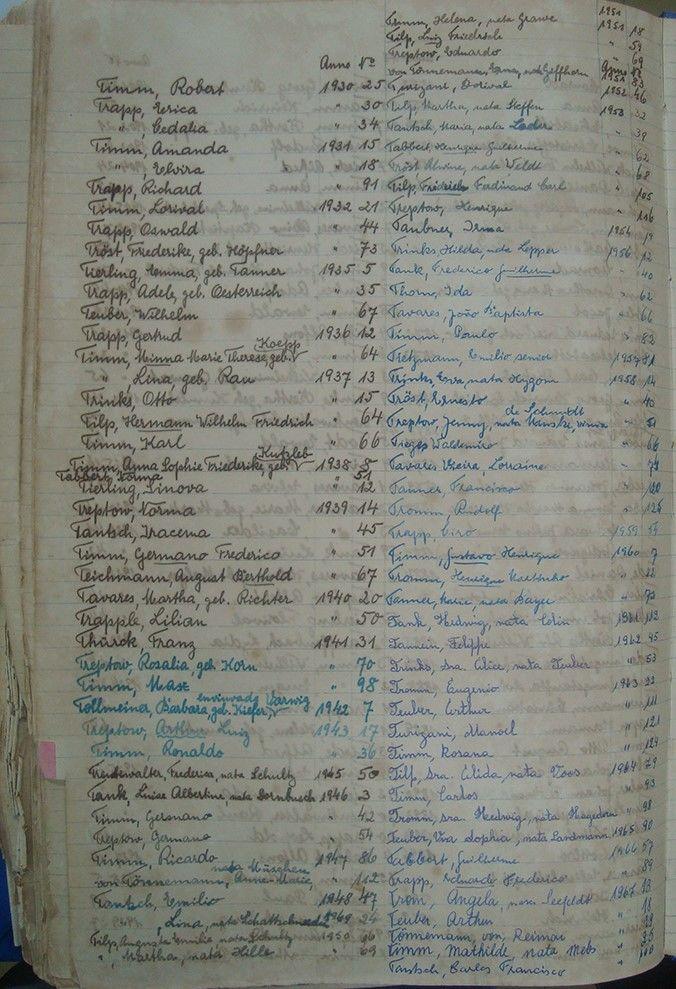 Anno No
Timm, Robert 1930 25
Trapp, Erica " 30
" Gedalia " 34
Timm, Amanda 1931 15
" Elvira " 18
Trapp, Richard " 91
Timm, Lorival 1932 21
Trapp, Oswald " 44
Tröst, Friederike, geb. Höpfner " 73
Tierling, Emma, geb. Tanner 1935 5
Trapp, Adele, geb. Oesterreich " 35
Teuber, Wilhelm " 67
Trapp, Gertrud 1936 12
Timm, Minna Marie Therese, geb. Koepp " 64
" Lina, geb. Rau 1937 13
Trinks, Otto " 15
Tilp, Hermann Wilhelm Friedrich " 64
Timm, Karl " 66
Timm, Anna Sophie Friederike, geb. Kutzleb 1938 8
Tabbert, Norma " 51
Tierling, Ninova " 12
Treptow, Norma 1939 14
Tantsch, Iracema " 45
Timm, Germano Frederico " 51
Teichmann, August Berthold " 67
Tavares, Martha, geb. Richter 1940 20
Trapple, Lilian " 50
Thürck Franz 1941 31
Treptow, Rosalia, geb. Korn " 70
Timm, Max " 98
Tollmeiner, Barbara, geb. Kiefer, enviuvada Varwig 1942 7
Treptow, Arthur Luiz 1943 17
Timm, Ronaldo " 36
Frederica, nata Schultz 1945 50
Tank, Luise Albertine, nata Dornbusch 1946 3
Timm, Germano " 42
Treptow, Germano " 54
Timm, Ricardo 1947 86
von Tönnemann, Anna Marie, nata Müschen " 112
Tantsch, Emilio 1948 47
" Lina, nata 1949 24
Tilp, Auguste Emilie, nata Schultz 1950 46
" Martha, nata Hille " 69
Timm, Helena, nata Grawe 1951 18
Tilp, Luiz Friedrich " 59
Treptow, Eduardo " 69
von Tönnemann, nata Geffhorn 83
Dorival 1952 46
Tilp, Martha, nata Steffen 1953 32
Tantsch, Maria, nata Leder " 39
Tabbert, Henrique Guilherme " 62
Tröst, Alwine, nata Weldt " 68
Tilp, Ferdinand Carl " 105
Treptow, Henrique " 116
Taubner, Irma 1954 19
Trinks, Hilda, nata Lepper 1956 12
Tank, Frederico Guilherme " 40
Thorn, Ida " 62
Tavares, João Baptista " 66
Timm, Paulo " 82
Tietzmann, Emilio senior 1957 81
Trinks, Erna, nata 1958 14
Tröst, Ernesto " 40
Treptow, Jenny, nata de Schmidt " 51
Waldemiro " 66
Tavares Vieira, Lorraine " 74
Tanner, Francisco " 120
Tromm, Rudolf " 125
Trapp, Ciro 1959 55
Timm, Gustavo Henrique 1960 7
Tromm, Henrique " 22
Tanner, Maria, nata Bayer " 73
Tank, Hedwig, nata 1961 112
Tannein, Felippe 1962 45
Trinks, sra. Alice, nata Teuber " 53
Tromm, Eugenio 1963 22
Teuber, Arthur " 111
Tuvizani, Manoel " 121
Timm, Rosana " 124
Tilp, sra. Elida, nata Voos 1964 79
Timm, Carlos " 93
Tromm, sra. Hedwig, nata Hagedorn " 98
Teuber, Vva Sophia, nata Landmann 1965 90
Tabbert, Guilherme 1966 57
Trapp, Eduardo Frederico " 89
Trom, Angela, nata Seefeldt 1967 13
Teuber, Arthur " 18
Tönnemann, von, Reimar " 29
Timm, Mathilde, nata Mebs " 33
Tantsch, Carlos Francisco " 100